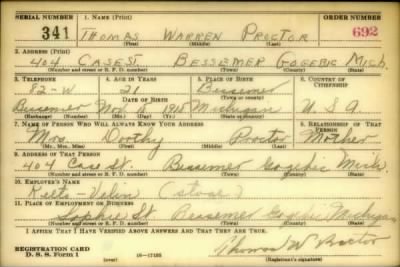 SERIAL NUMBER 1. NAME (Print) ORDER NUMBER
341 THOMAS WARREN PROCTOR 692
(First) (Middle) (Last)
2. ADDRESS (Print)
404 CASE ST. BESSEMER GOGEBIC MICH.
(Number and street or R. F. D. number) (Town) (County) (State)
3. TELEPHONE 4. AGE IN YEARS 5. PLACE OF BIRTH 6. COUNTRY OF CITIZENSHIP
82-W 21 Bessemer
DATE OF BIRTH (Town or county)
Bessemer Nov. 15 1918 Michigan U S A
(Exchange) (Number) (Mo.) (Day) (Yr.) (State or country)
7. NAME OF PERSON WHO WILL ALWAYS KNOW YOUR ADDRESS 8. RELATIONSHIP OF THAT PERSON
Mrs. Dorthy Proctor Mother
(Mr., Mrs., Miss) (First) (Middle) (Last)
9. ADDRESS OF THAT PERSON
404 Case St. Bessemer Gogebic Mich.
(Number and street or R. F. D. number) (Town) (County) (State)
10. EMPLOYER'S NAME
(store)
11. PLACE OF EMPLOYMENT OR BUSINESS
Sophie St. Bessemer Gogebic Michigan
(Number and street or R. F. D. number) (Town) (County) (State)
I AFFIRM THAT I HAVE VERIFIED ABOVE ANSWERS AND THAT THEY ARE TRUE.
REGISTRATION CARD
D. S. S. Form 1 16-17105 Thomas W Proctor
(Registrant's signature)